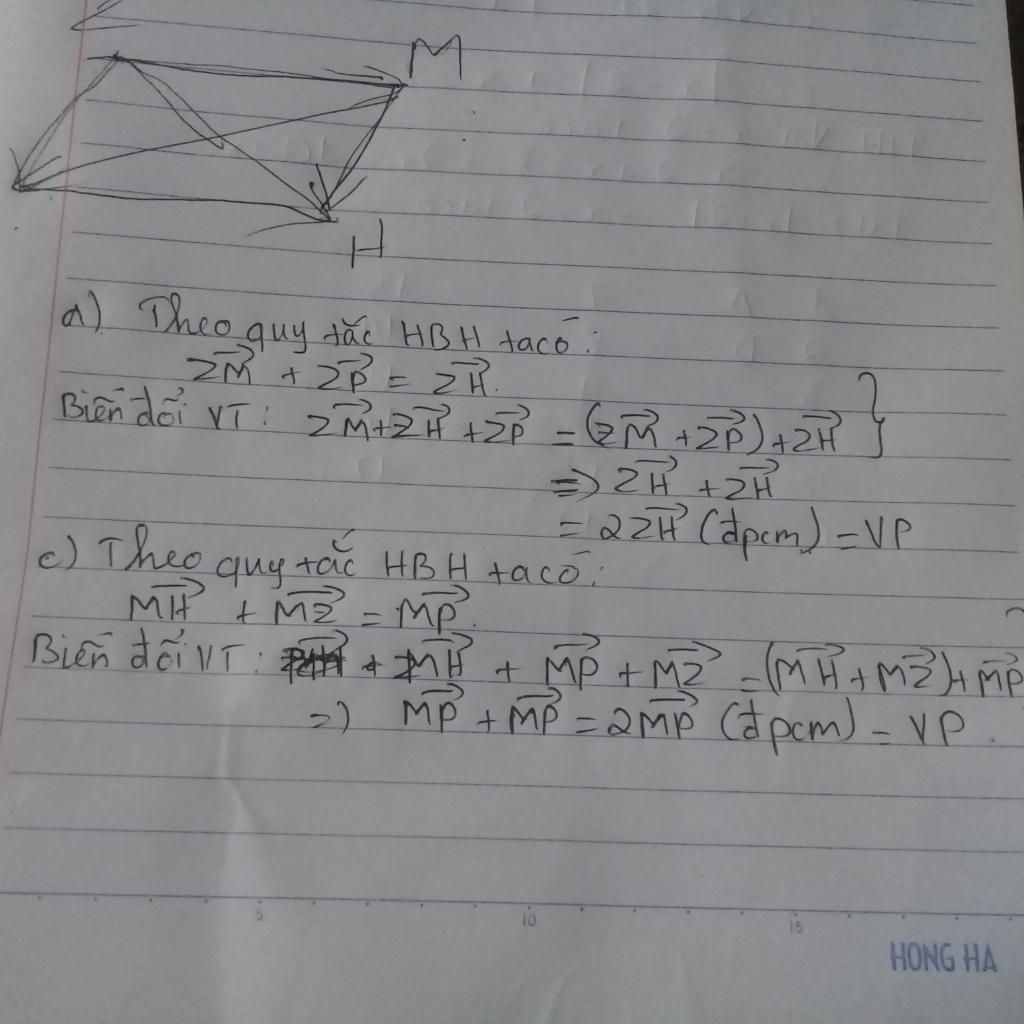 M
H
a) Theo quy tắc HBH ta có:
ZM + ZP = ZH.
Biến đổi VT: ZM + ZH + ZP = (ZM + ZP) + ZH }
=> ZH + ZH
= 2ZH (đpcm) = VP
c) Theo quy tắc HBH ta có:
MH + MZ = MP.
Biến đổi VT: + MH + MP + MZ = (MH + MZ) + MP
=) MP + MP = 2MP (đpcm) = VP.
5 10 15
HONG HA